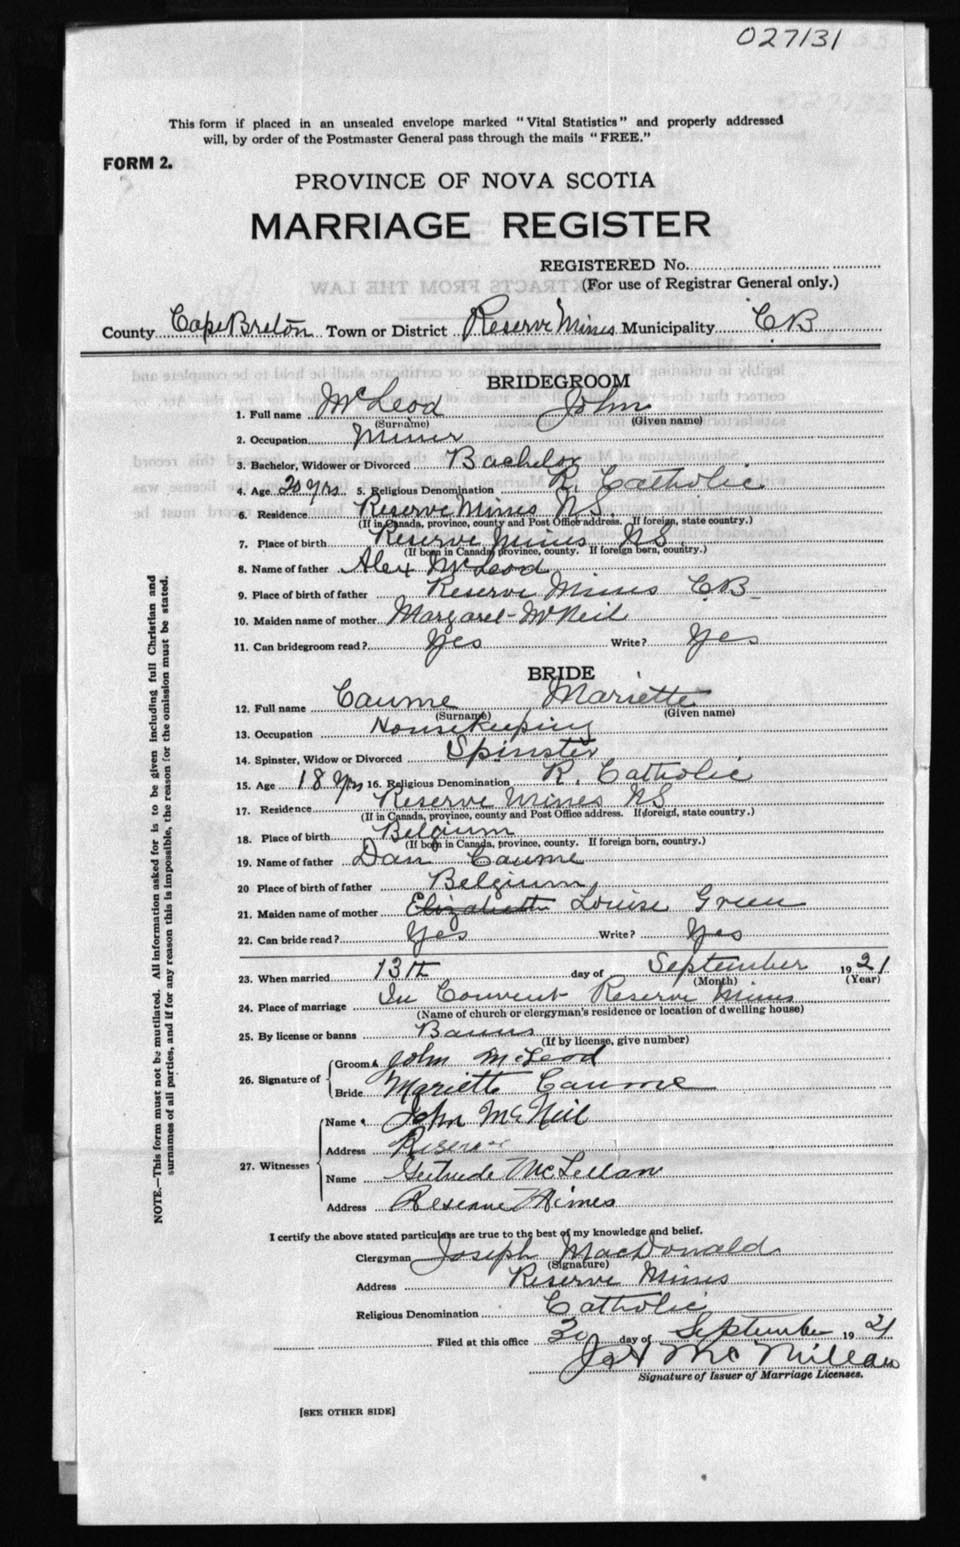 027131
This form if placed in an unsealed envelope marked "Vital Statistics" and properly addressed
will, by order of the Postmaster General pass through the mails "FREE."
FORM 2.
PROVINCE OF NOVA SCOTIA
MARRIAGE REGISTER
REGISTERED No.
(For use of Registrar General only.)
County Cape Breton Town or District Reserve Mines Municipality C B
BRIDEGROOM
1. Full name McLeod John
(Surname) (Given name)
2. Occupation Miner
3. Bachelor, Widower or Divorced Bachelor
4. Age 20 yrs 5. Religious Denomination R. Catholic
6. Residence Reserve Mines N.S.
(If in Canada, province, county and Post Office address. If foreign, state country.)
7. Place of birth Reserve Mines NS
(If born in Canada, province, county. If foreign born, country.)
8. Name of father Alex McLeod
9. Place of birth of father Reserve Mines C.B
10. Maiden name of mother Margaret McNeil
11. Can bridegroom read? Yes Write? Yes
BRIDE
12. Full name Caume Mariette
(Surname) (Given name)
13. Occupation Housekeeping
14. Spinster, Widow or Divorced Spinster
15. Age 18 Yrs 16. Religious Denomination R. Catholic
17. Residence Reserve Mines NS
(If in Canada, province, county and Post Office address. If foreign, state country.)
18. Place of birth Belgium
(If born in Canada, province, county. If foreign born, country.)
19. Name of father Dan Caume
20 Place of birth of father Belgium
21. Maiden name of mother Elizabeth Louise Green
22. Can bride read? Yes Write? Yes
23. When married 13th day of September 1921
(Month) (Year)
24. Place of marriage In Convent Reserve Mines
(Name of church or clergyman's residence or location of dwelling house)
25. By license or banns Banns
(If by license, give number)
26. Signature of Groom John McLeod
Bride Mariette Caume
27. Witnesses Name John McNeil
Address Reserve
Name Gertrude McLellan
Address Reserve Mines
I certify the above stated particulars are true to the best of my knowledge and belief.
Clergyman Joseph MacDonald
(Signature)
Address Reserve Mines
Religious Denomination Catholic
Filed at this office 30 day of September 1921
J A McMillan
Signature of Issuer of Marriage Licenses.
[SEE OTHER SIDE]
NOTE.—This form must not be mutilated. All information asked for is to be given including full Christian and
surnames of all parties, and if for any reason this is impossible, the reason for the omission must be stated.